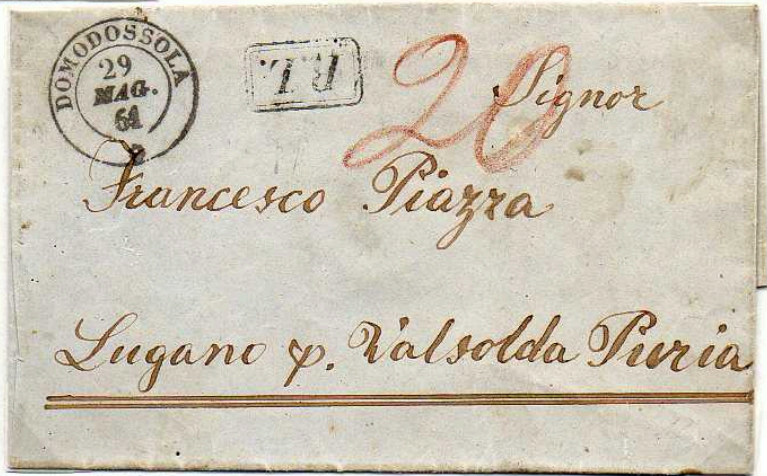 DOMODOSSOLA
29
MAG.
61
R.L.
20
Signor
Francesco Piazza
Lugano p. Valsolda Puria